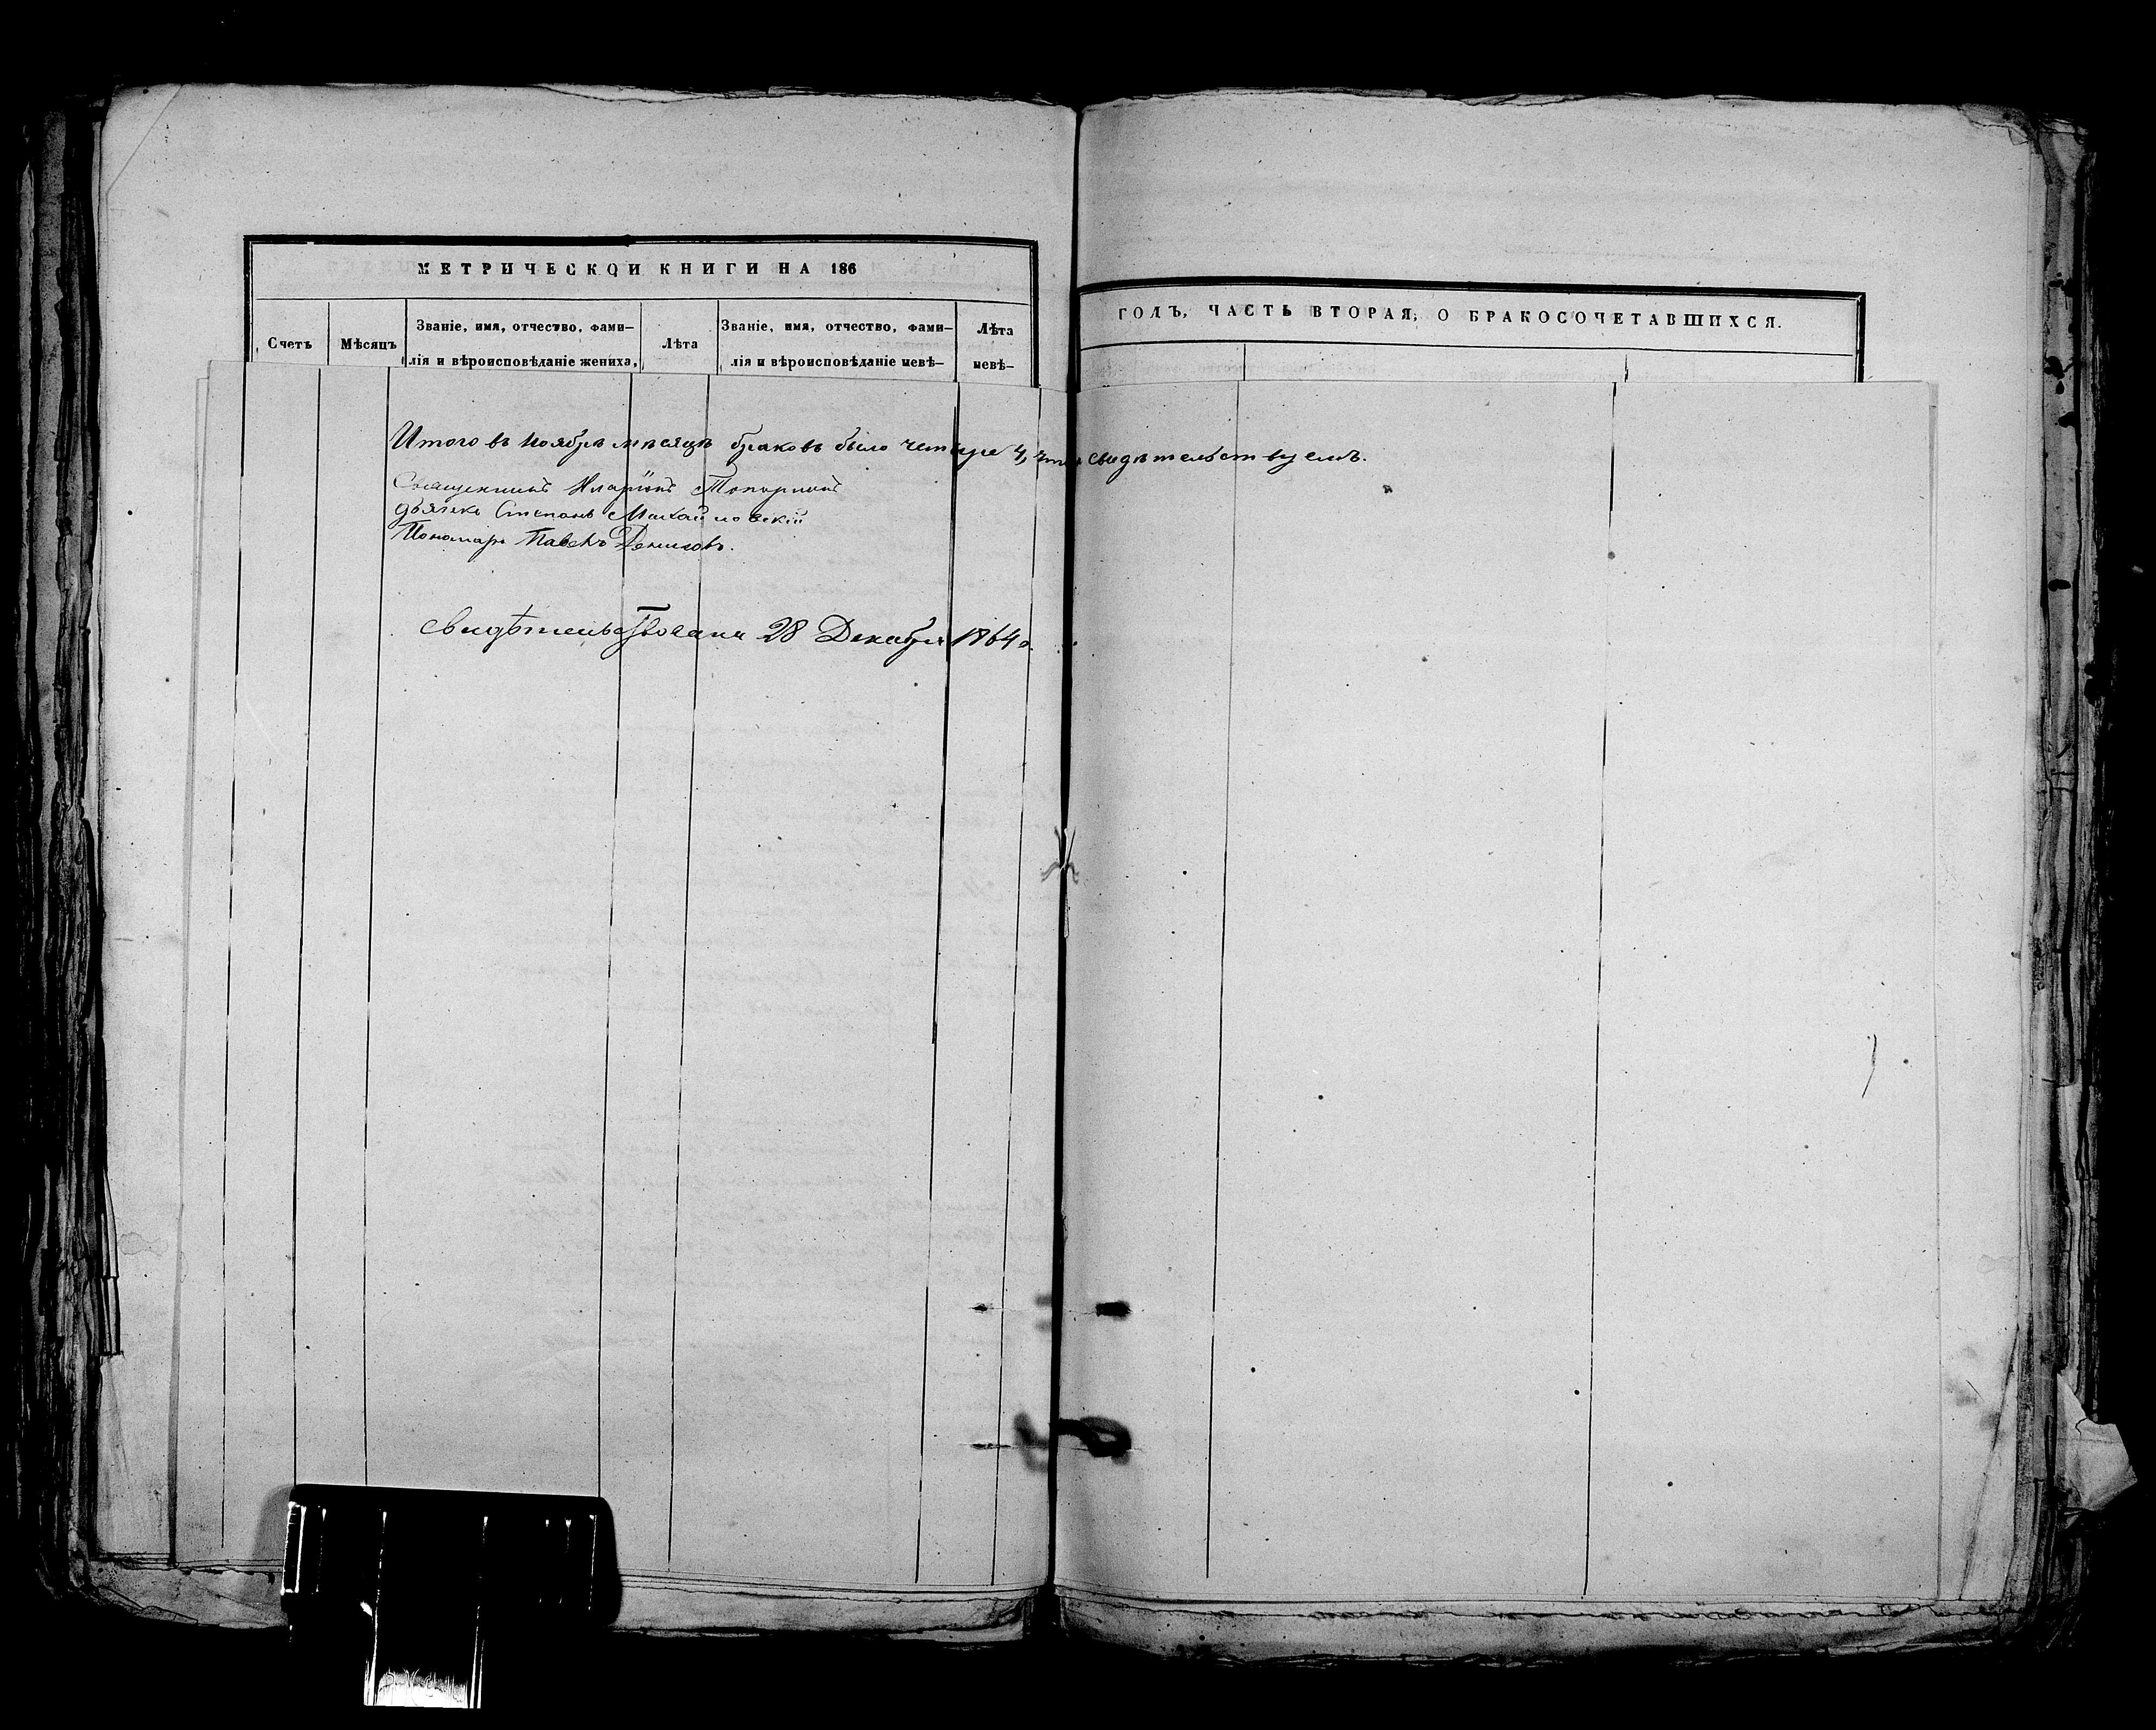 МЕТРИЧЕСКОЙ КНИГИ НА 186
ГОДЪ, ЧАСТЬ ВТОРАЯ, О БРАКОСОЧЕТАВШИХСЯ.
Счетъ
Мѣсяцъ
Званіе, имя, отчество, фами-
лія и вѣроисповѣданіе жениха,
Лѣта
Званіе, имя, отчество, фами-
лія и вѣроисповѣданіе невѣ-
Лѣта
невѣ-
Итого въ ноябрѣ мѣсяцѣ браковъ было четыре 4, что свидѣтельствуемъ.
Священникъ Иларіонъ
Дьячекъ Степанъ Михайловскій
Пономарь Павелъ Денисовъ.
Свидѣтельствована 28 Декабря 1864